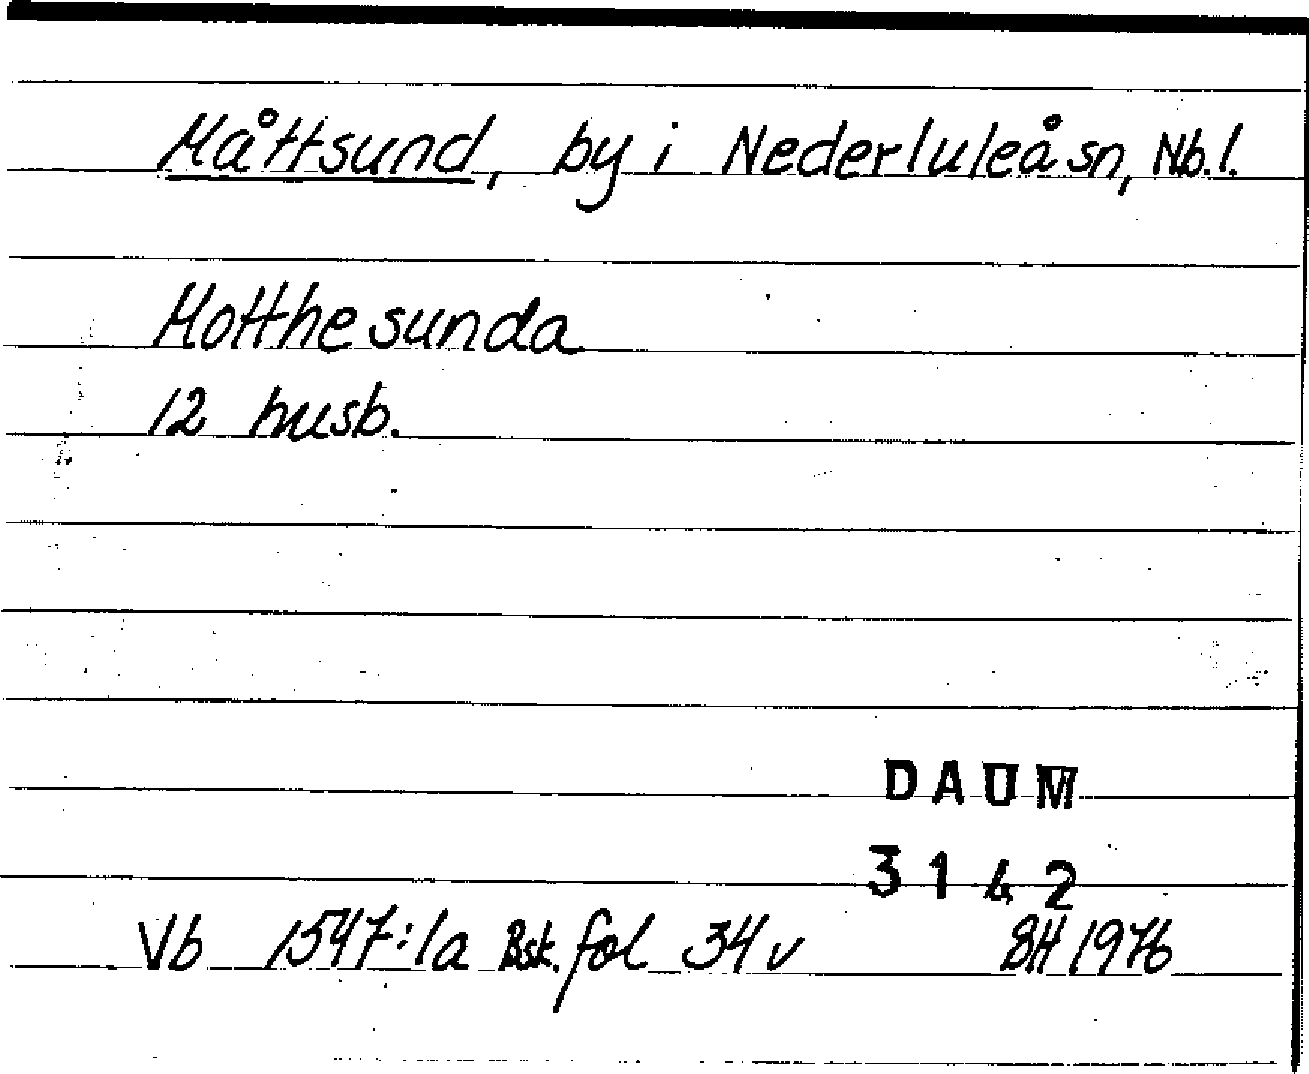 Måttsund, by i Nederluleå sn, Nb.l.
Motthesunda
12 husb.
DAUM
3142
Vb 1547:1a Bsk. fol 34 v BH 1976